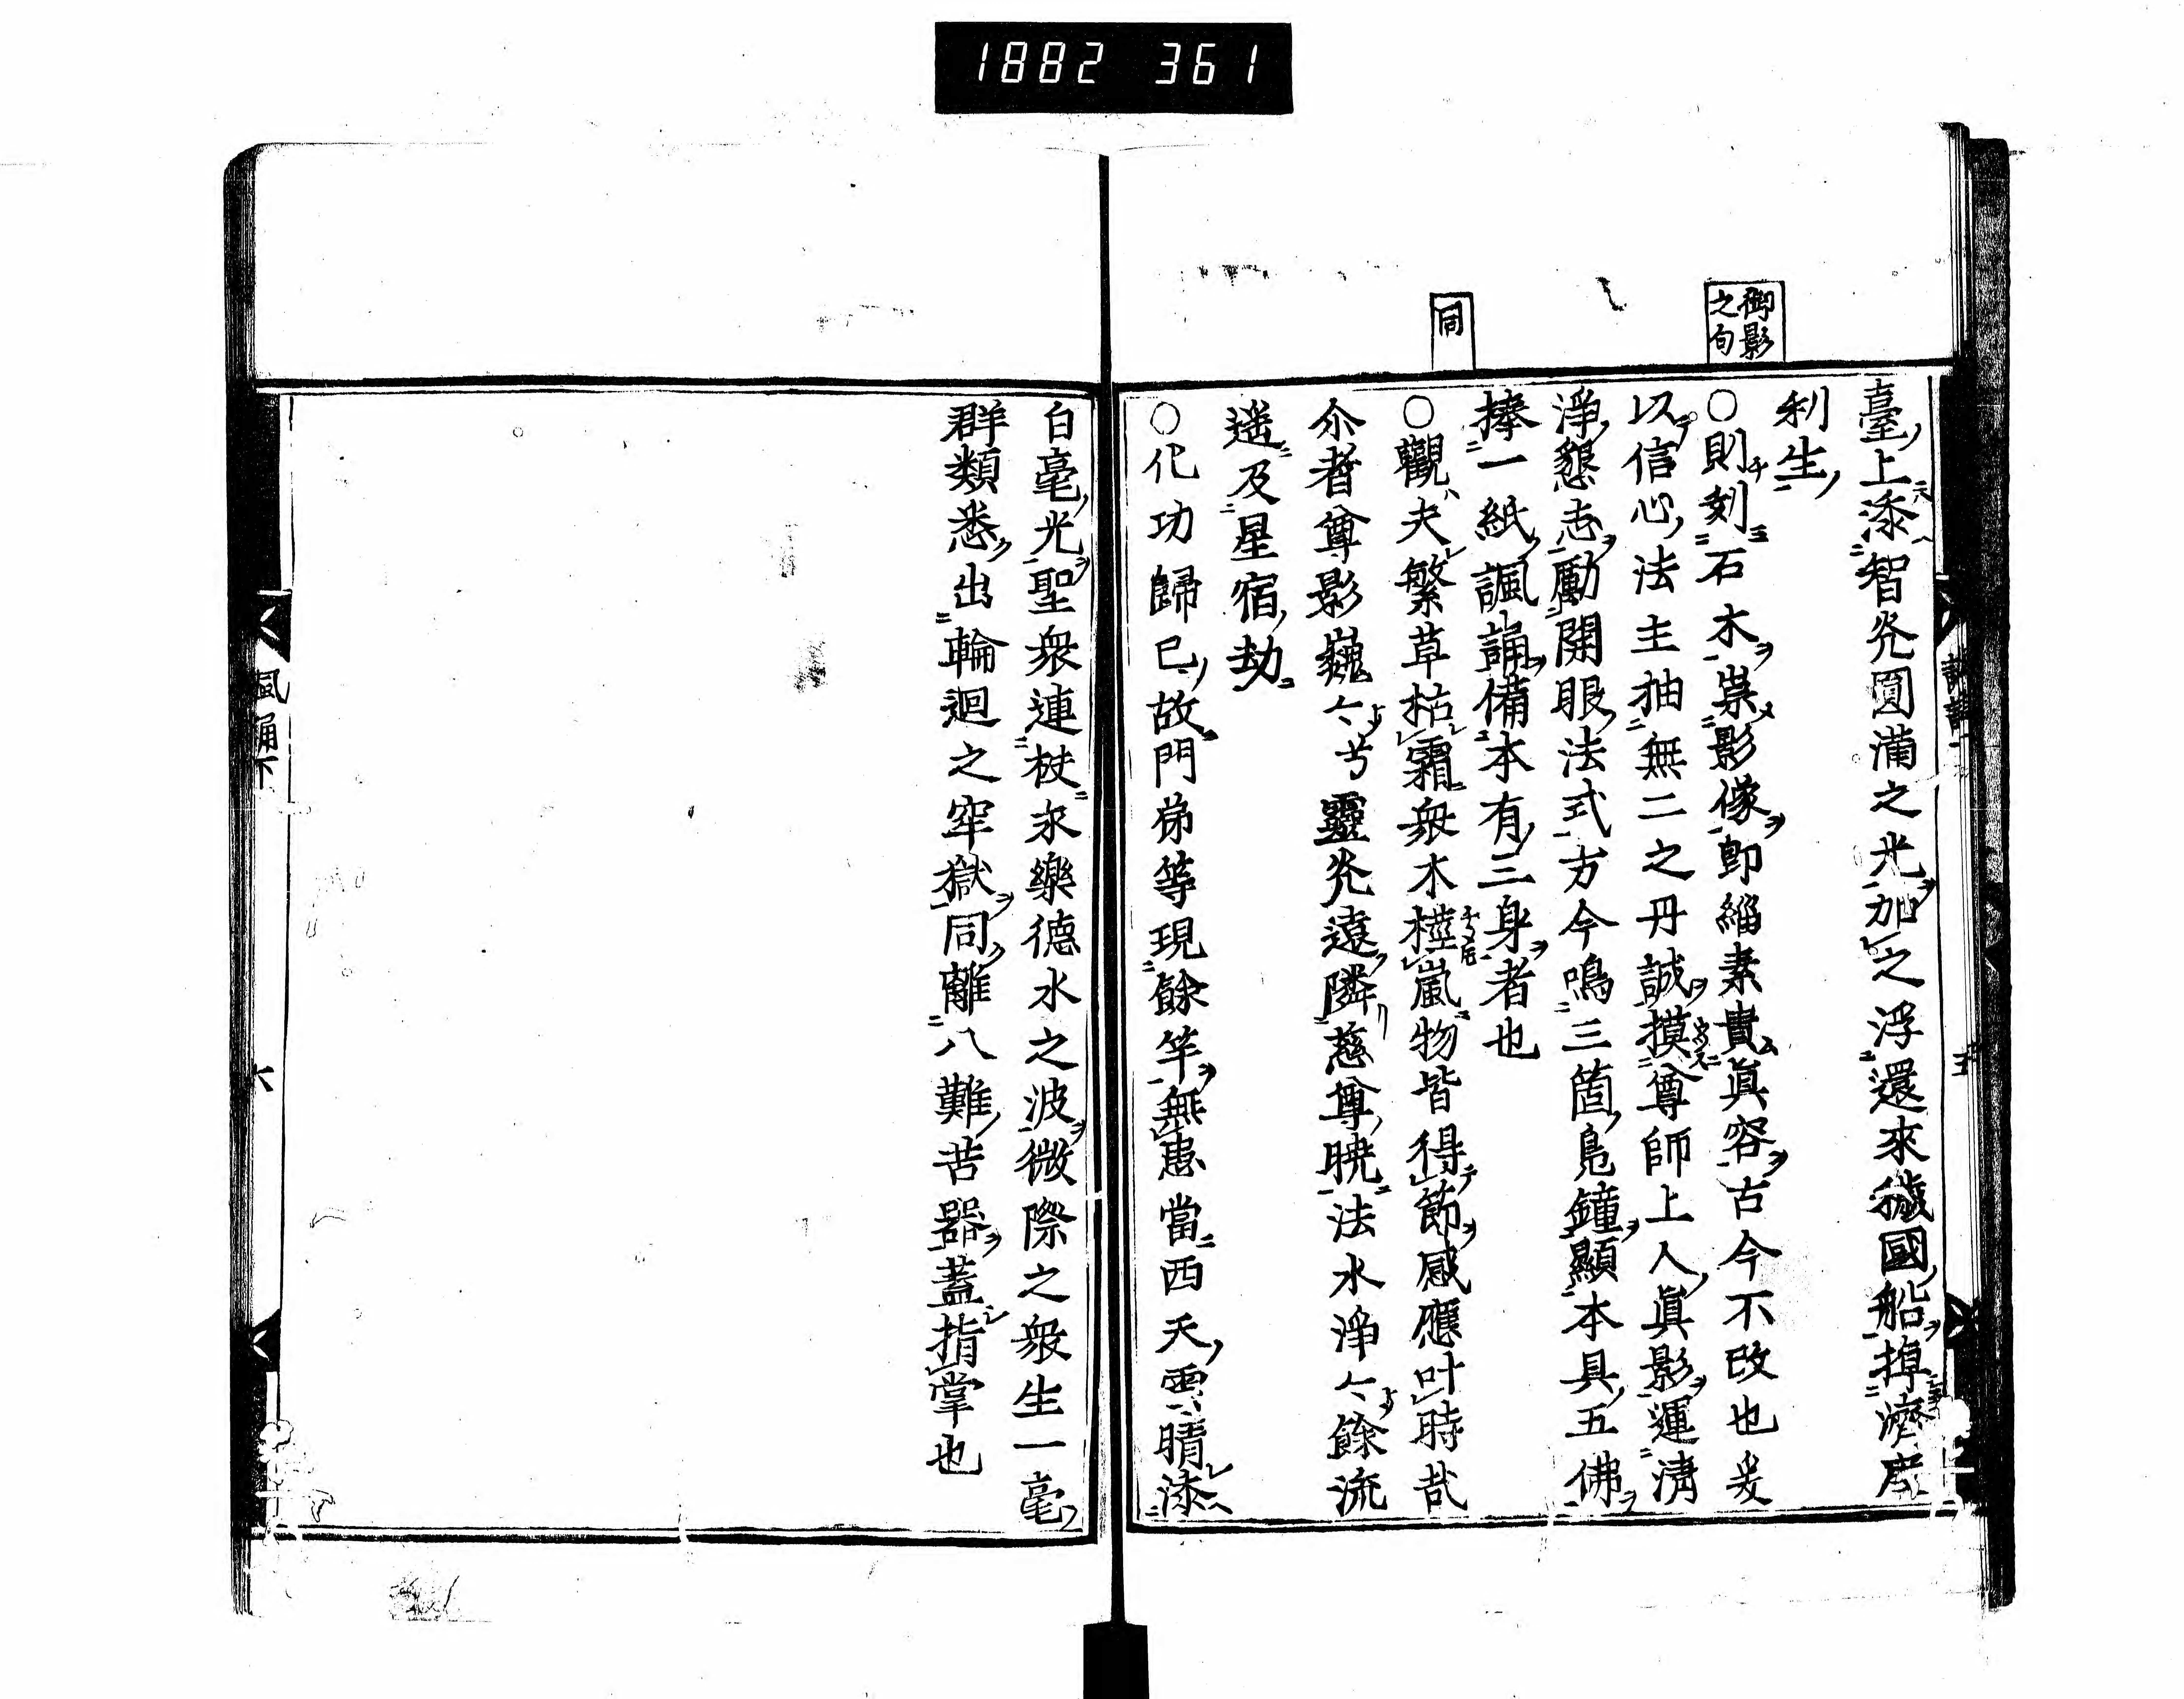 1882 361
臺上漆智炎圓滿之光加之浮還來穢國船掉濟度
利生
御影
之句
○則刻石木崇影像即緇素貴眞容古今不改也爰
以信心法主抽無二之丹誠摸尊師上人眞影運淸
淨懇志勵開眼法式方今鳴三箇鳬鐘顯本具五佛
捧一紙諷誦備本有三身者也
同
○觀夫繁草枯霜衆木槿嵐物皆得節感應叶時哉
尒者尊影巍〻兮靈炎遠隣慈尊曉法水淨〻餘流
遥及星宿劫
○化功歸已故門弟等現餘竿無恚當西天雲晴漆
白毫光聖衆連枝永樂德水之波微際之衆生一毫
群類悉出輪迴之牢獄同離八難苦器蓋指掌也
諷誦下
六